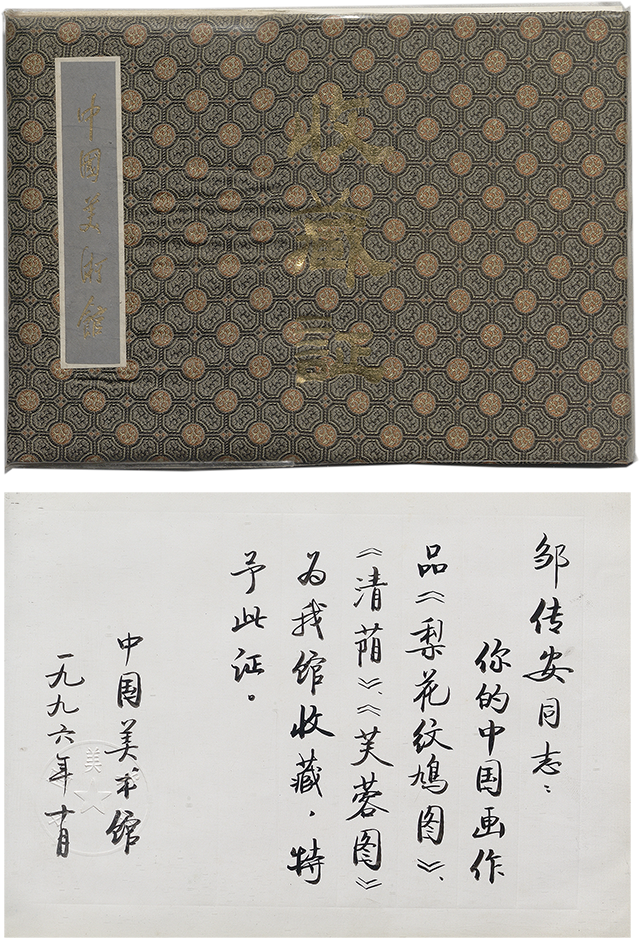 中国美術館
收藏証
邹传安同志：
你的中国画作
品《梨花纹鸠图》、
《清荫》、《芙蓉图》
为我馆收藏，特
予此证。
中国美术馆
一九九六年十月
美